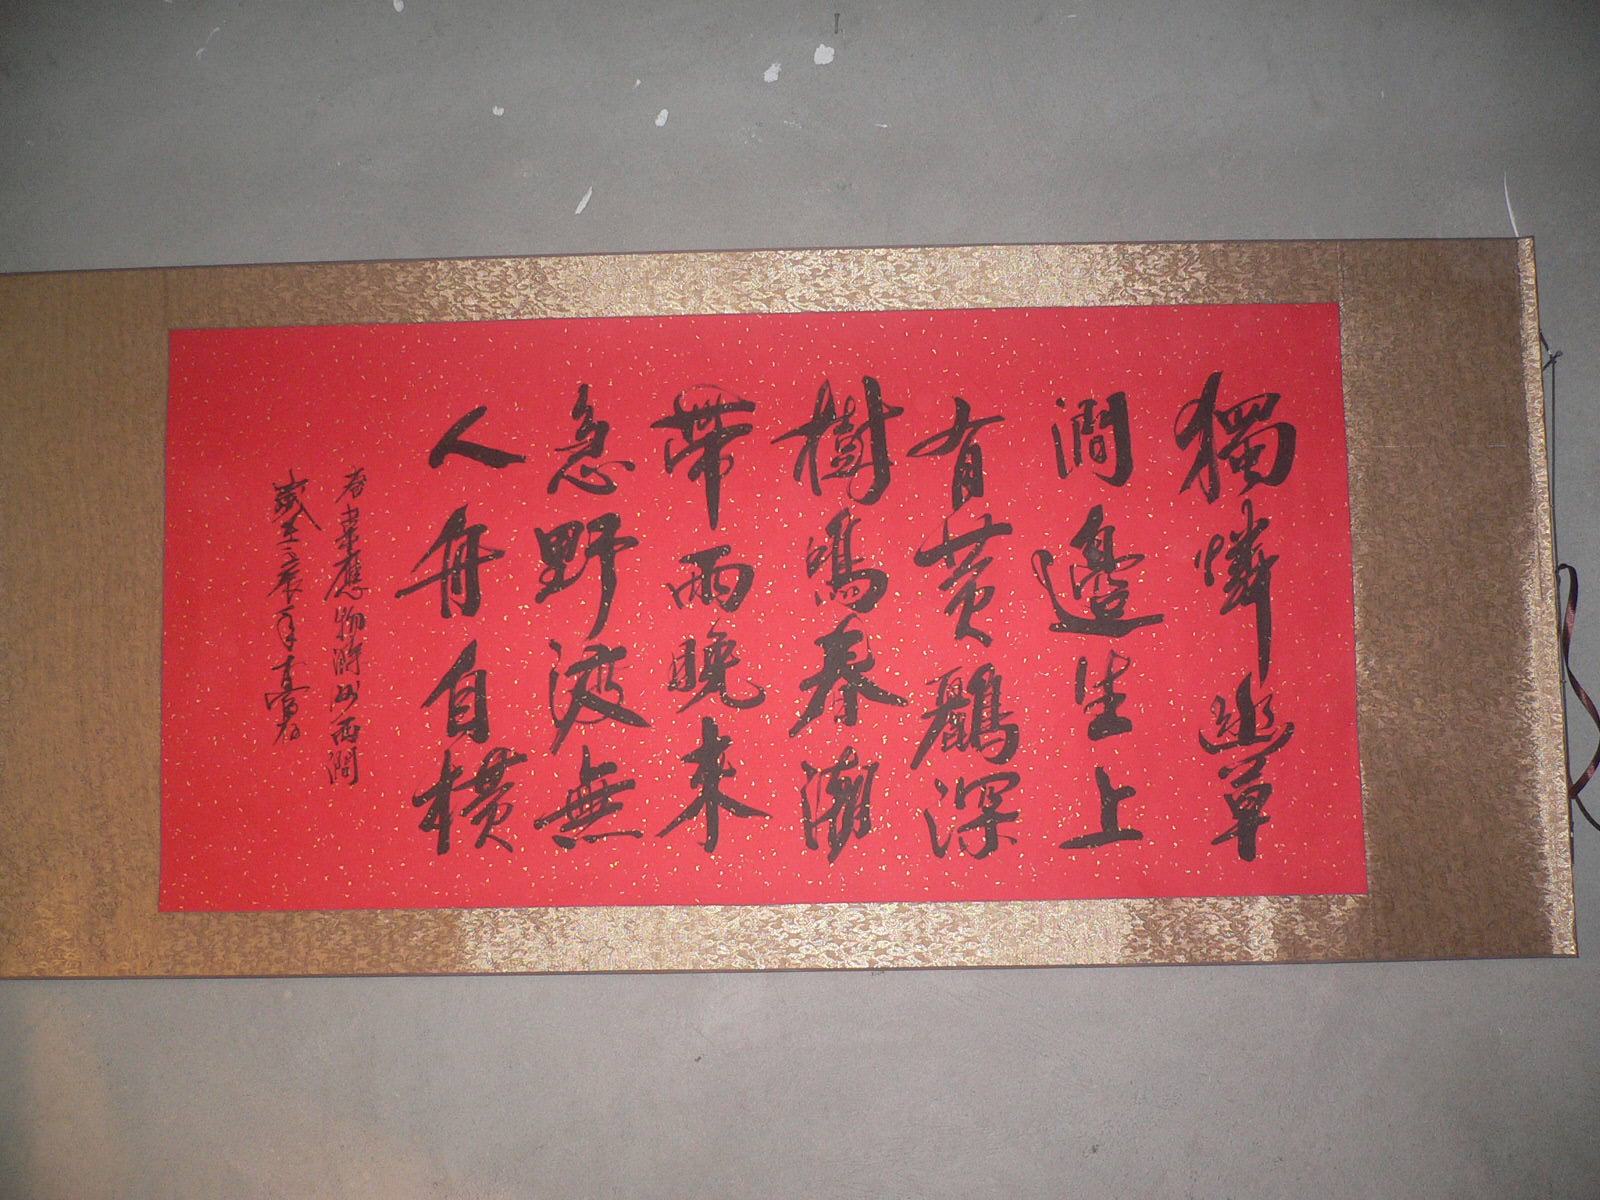 獨憐幽草
澗邊生上
有黄鸝深
樹鳴春潮
帶雨晚来
急野渡無
人舟自橫
韋應物滁州西澗
歲壬辰年